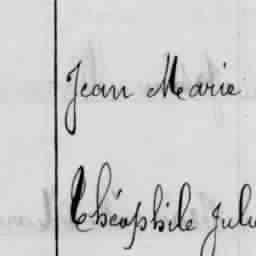 Jean Marie
Théophile Jul